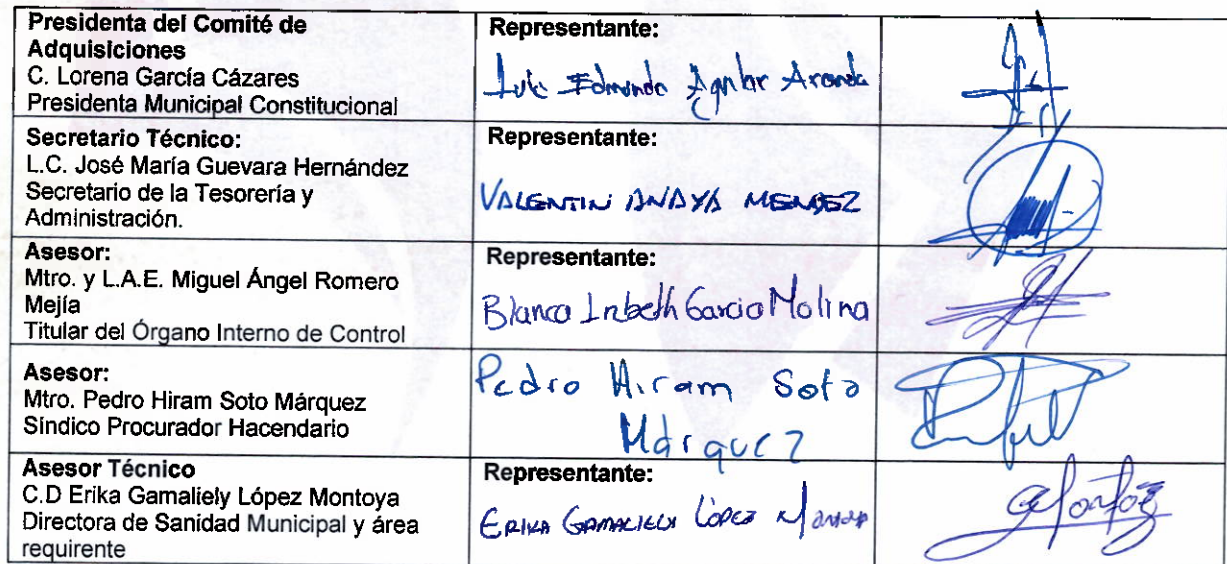 Presidenta del Comité de
Adquisiciones
C. Lorena García Cázares
Presidenta Municipal Constitucional
Representante:
Luis Edmundo Aguilar Aranda
Secretario Técnico:
L.C. José María Guevara Hernández
Secretario de la Tesorería y
Administración.
Representante:
VALENTIN ANAYA MENDEZ
Asesor:
Mtro. y L.A.E. Miguel Ángel Romero
Mejía
Titular del Órgano Interno de Control
Representante:
Blanca Garcia Molina
Asesor:
Mtro. Pedro Hiram Soto Márquez
Síndico Procurador Hacendario
Pedro Hiram Soto
Márquez
Asesor Técnico
C.D Erika Gamaliely López Montoya
Directora de Sanidad Municipal y área
requirente
Representante:
ERIKA GAMALIELY LÓPEZ